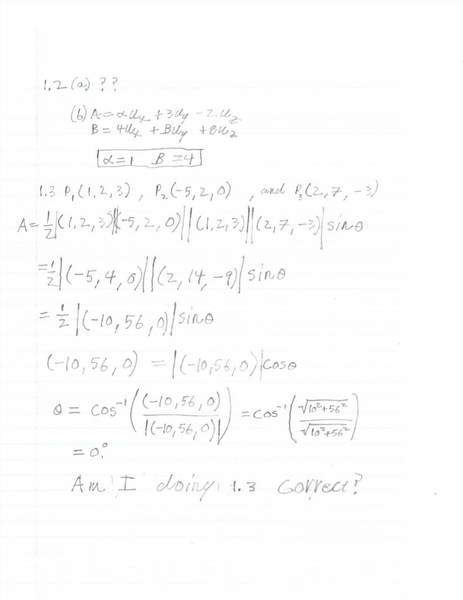 1.2 (a) ??
(b) A = αuₓ + 3u_y - 2u_z
B = 4uₓ + βu_y + 8u_z
α = 1 β = 4
1.3 P₁(1,2,3), P₂(-5,2,0), and P₃(2,7,-3)
A = 1/2 |(1,2,3)||(-5,2,0)||(1,2,3)||(2,7,-3)| sinθ
= 1/2 |(-5,4,0)||(2,14,-9)| sinθ
= 1/2 |(-10,56,0)| sinθ
(-10,56,0) = |(-10,56,0)| cosθ
θ = cos⁻¹((-10,56,0)/|(-10,56,0)|) = cos⁻¹(√10²+56²/√10²+56²)
= 0°
Am I doing 1.3 correct?